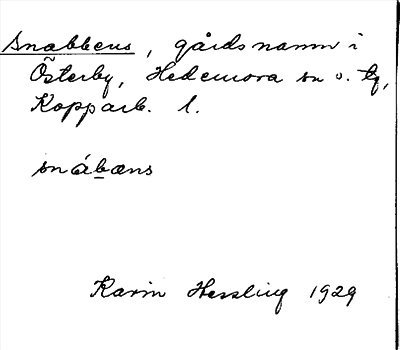 Snabbens, gårdsnamn i
Österby, Hedemora sn o. tg,
Kopparb. l.
snábæns
Karin Hessling 1929